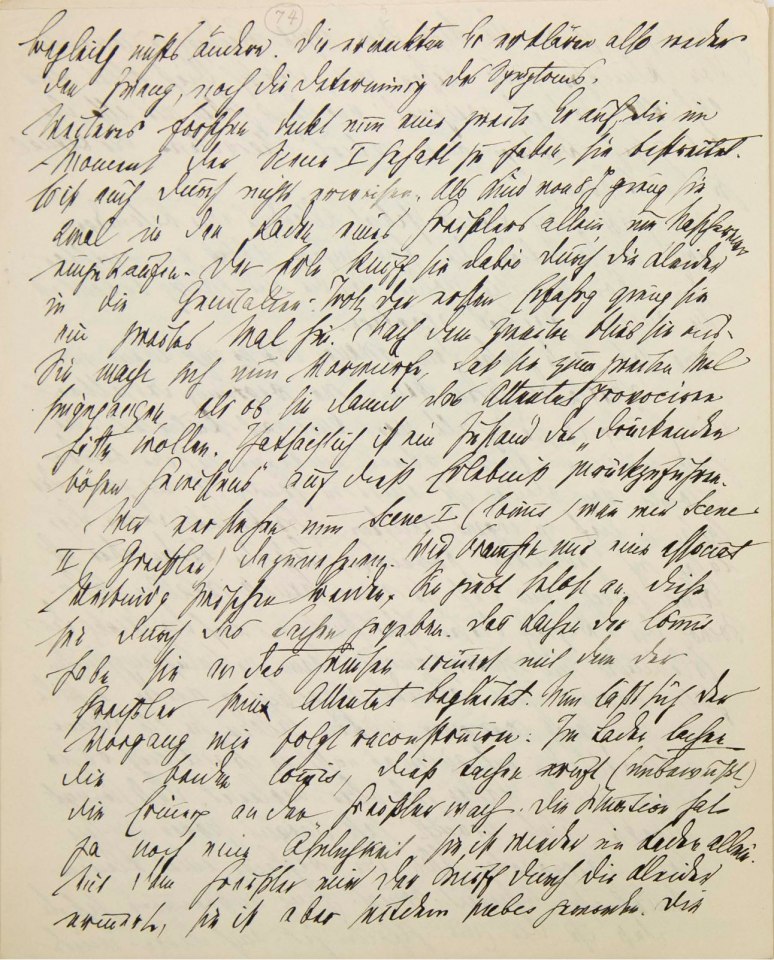 74
Begleitg nichts ändern. Die erweckten Er erklären also weder
den Zwang, noch die Determinirg des Symptoms.
Weiteres Forschen deckt nun eine zweite Er auf, die im
Moment der Scene I gehabt zu haben, sie bestreitet.
Es ist auch durch nichts erwiesen. Als Kind von 8 J gieng sie
2mal in den Laden eines Greißlers allein um Näschereien
einzukaufen. Der Edle kniff sie dabei durch die Kleider
in die Genitalien. Trotz der ersten Erfahrg gieng sie
ein zweites Mal hin. Nach dem zweiten blieb sie aus.
Sie macht sich nun Vorwürfe, daß sie zum zweiten Mal
hingegangen, als ob sie damit das Attentat provociren
hätte wollen. Thatsächlich ist ein Zustand des „drückenden
bösen Gewissens“ auf dieß Erlebniß zurückzuführen.
Wir verstehen nun Scene I (Comis) wenn wir Scene
II (Greißler) dazunehmen. Wir brauchen nur eine associat
Verbindg zwischen beiden. Sie giebt selbst an, diese
sei durch das Lachen gegeben. Das Lachen der Comis
habe sie an das Grinsen erinnert mit dem der
Greißler sein Attentat begleitet. Nun läßt sich der
Vorgang wie folgt reconstruiren: Im Laden lachen
die beiden Comis, dieß Lachen ruft (unbewußt)
die Erinnerg an den Greißler wach. Die Situation hat
ja noch eine Ähnlichkeit, sie ist wieder im Laden allein.
Mit dem Greißler wird der Kniff durch die Kleider
erinnert, sie ist aber seitdem pubes geworden. Die